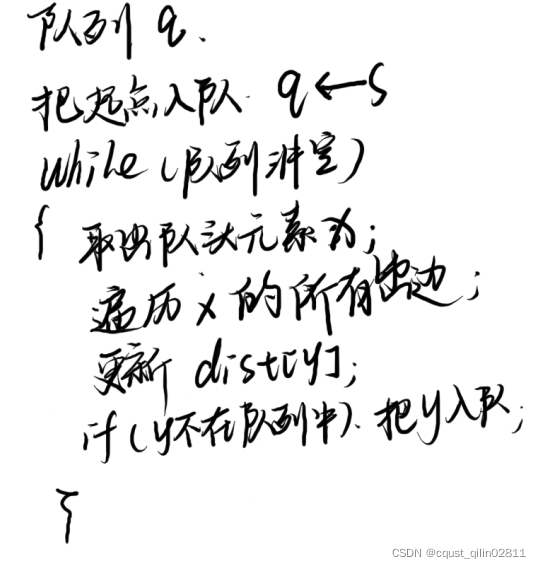 队列 q.
把起点入队. q←s
while (队列非空)
{ 取出队头元素x;
遍历 x 的所有出边;
更新 dist[y];
if (y不在队列中). 把y入队;
}
CSDN @cqust_qilin02811